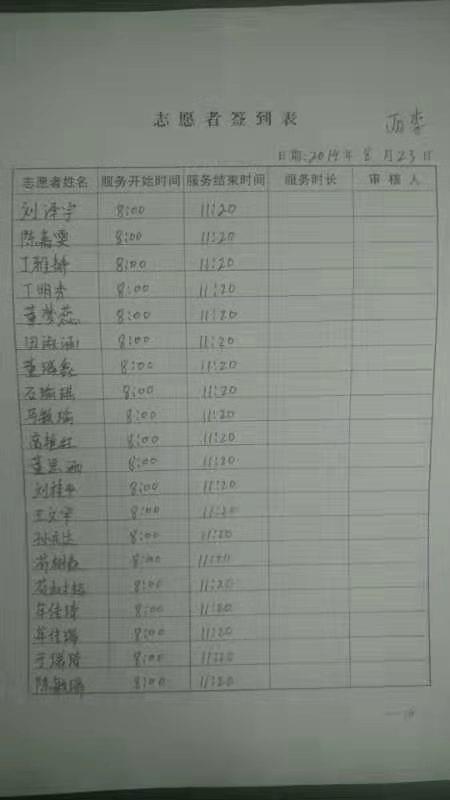 志愿者签到表
日期:2019年8月23日
志愿者姓名 服务开始时间 服务结束时间 服务时长 审核人
刘泽宇 8:00 11:20
陈嘉雯 8:00 11:20
丁雅静 8:00 11:20
丁明秀 8:00 11:20
董梦蕊 8:00 11:20
田淑涵 8:00 11:20
董瑞鑫 8:00 11:20
石瑜琪 8:00 11:20
马敏瑜 8:00 11:20
高艳红 8:00 11:20
董思涵 8:00 11:20
刘桂平 8:00 11:20
王文宇 8:00 11:20
8:00 11:20
8:00 11:20
8:00 11:20
牟佳琦 8:00 11:20
牟佳瑞 8:00 11:20
于瑞琦 8:00 11:20
陈敏瑞 8:00 11:20